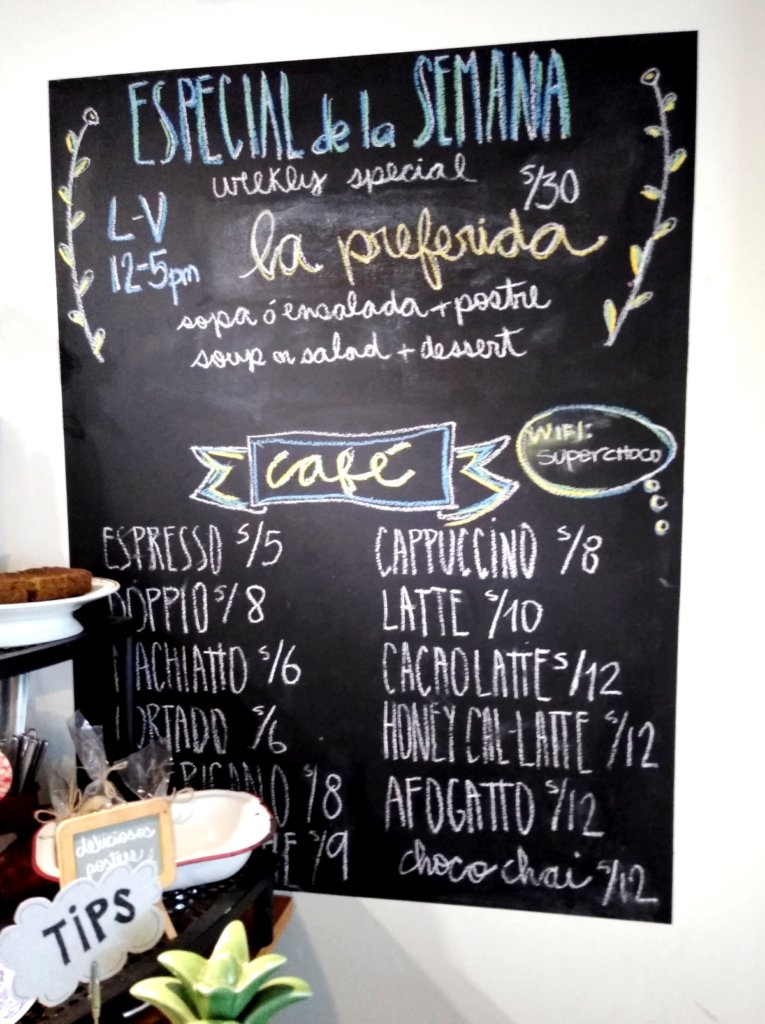 ESPECIAL de la SEMANA
weekly special
S/30
L-V
12-5pm
la preferida
sopa ó ensalada + postre
soup or salad + dessert
WIFI:
SUPERCHOCO
café
ESPRESSO S/5
DOPPIO S/8
MACHIATTO S/6
CORTADO S/6
AMERICANO S/8
S/9
CAPPUCCINO S/8
LATTE S/10
CACAO LATTE S/12
HONEY CAL-LATTE S/12
AFOGATTO S/12
choco chai S/12
deliciosos
postres
TiPS